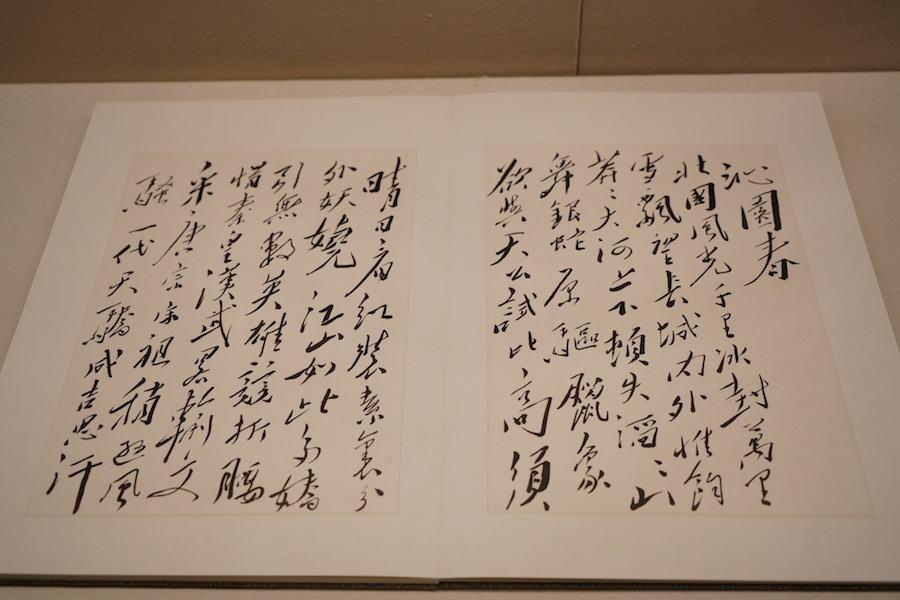 沁園春
北國風光千里冰封萬里
雪飄望長城内外惟餘
莽々大河上下頓失滔々山
舞銀蛇原驅臘象
欲與天公試比高須
晴日看紅裝素裹分
外妖嬈江山如此多嬌
引無數英雄競折腰
惜秦皇漢武畧輸文
采唐宗宋祖稍遜風
騷一代天驕成吉思汗